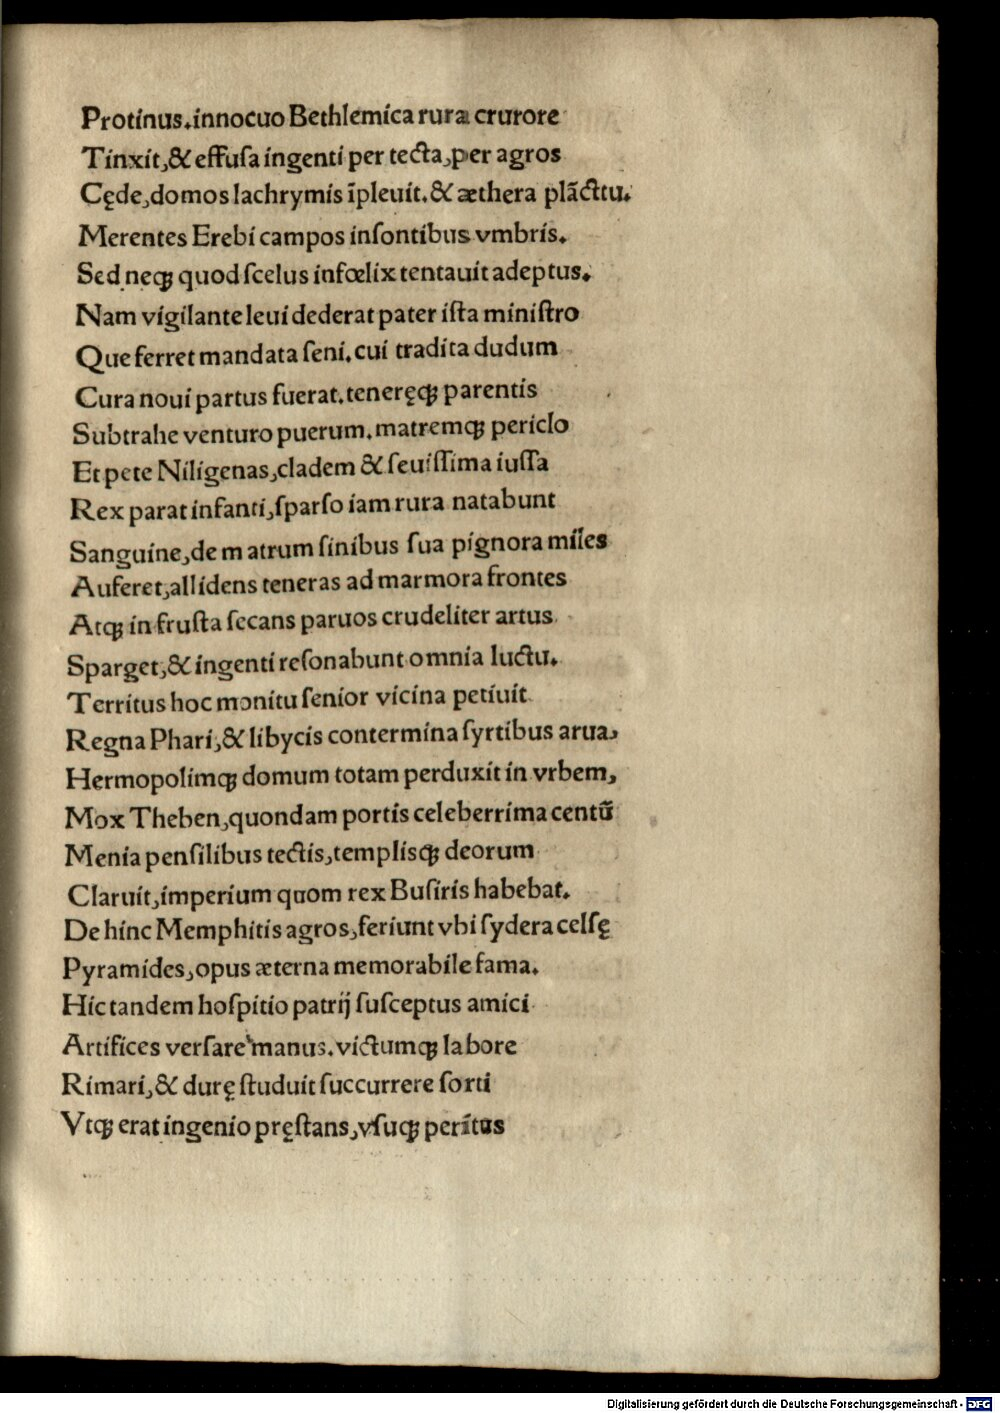 Protinus.innocuo Bethlemica rura crurore
Tinxit,& effusa ingenti per tecta,per agros
Cęde,domos lachrymis īpleuit.& æthera plācttu.
Merentes Erebi campos insontibus vmbris.
Sed neqꝫ quod scelus infœlix tentauit adeptus.
Nam vigilante leui dederat pater ista ministro
Que ferret mandata seni.cui tradita dudum
Cura noui partus fuerat.teneręqꝫ parentis
Subtrahe venturo puerum.matremqꝫ periclo
Et pete Niligenas,cladem & seuissima iussa
Rex parat infanti,sparso iam rura natabunt
Sanguine,de matrum sinibus sua pignora miles
Auferet,allidens teneras ad marmora frontes
Atqꝫ in frusta secans paruos crudeliter artus
Sparget,& ingenti resonabunt omnia luctu.
Territus hoc monitu senior vicina petiuit
Regna Phari,& libycis contermina syrtibus arua,
Hermopolimqꝫ domum totam perduxit in vrbem,
Mox Theben,quondam portis celeberrima centū
Menia pensilibus tectis,templisqꝫ deorum
Claruit,imperium quom rex Busiris habebat.
De hinc Memphitis agros,feriunt vbi sydera celsę
Pyramides,opus æterna memorabile fama.
Hic tandem hospitio patrij susceptus amici
Artifices versare manus.victumqꝫ labore
Rimari,& durę studuit succurrere sorti
Vtqꝫ erat ingenio pręstans,vsuqꝫ peritus
Digitalisierung gefördert durch die Deutsche Forschungsgemeinschaft - DFG